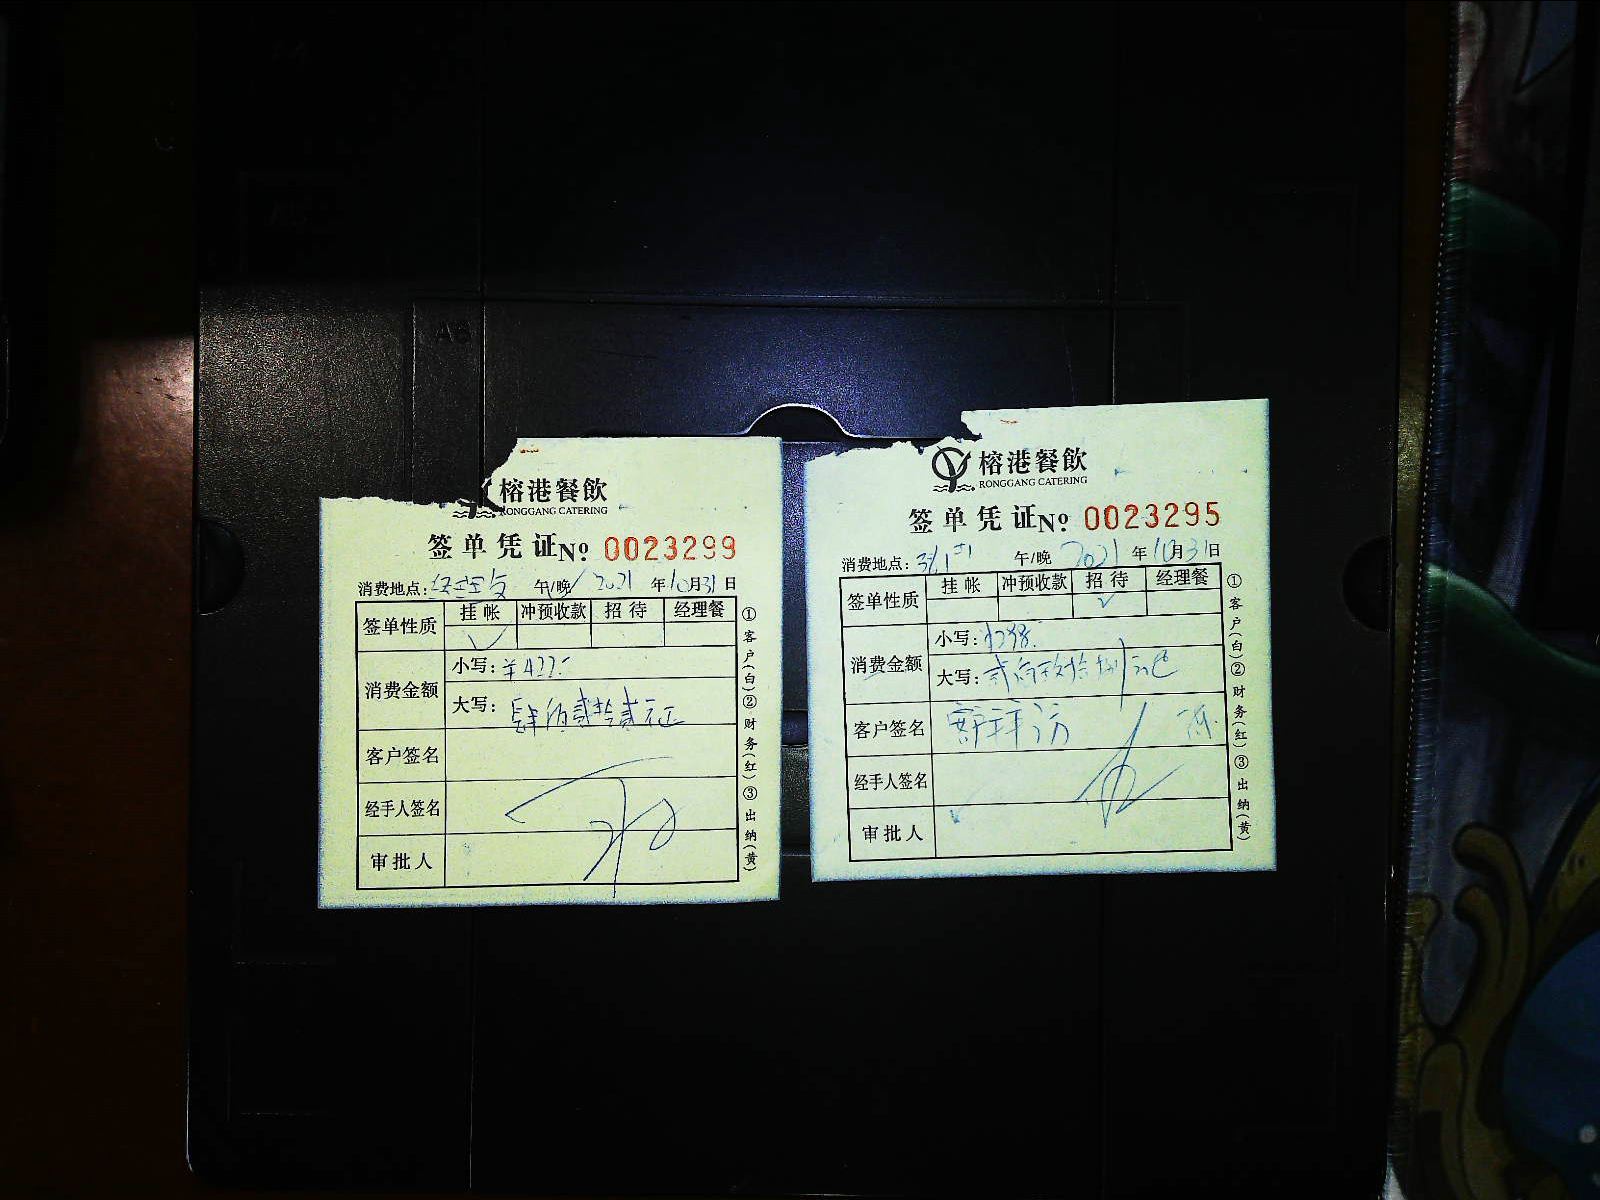 榕港餐飲
RONGGANG CATERING
签单凭证 Nº 0023299
消费地点: 午/晚 2021 年 10 月 31 日
签单性质 挂帐 冲预收款 招待 经理餐
✓
消费金额
小写: ¥422.-
大写: 肆佰贰拾贰元正
客户签名
经手人签名
审批人
①客户(白)②财务(红)③出纳(黄)
榕港餐飲
RONGGANG CATERING
签单凭证 Nº 0023295
消费地点: 午/晚 2021 年 10 月 31 日
签单性质 挂帐 冲预收款 招待 经理餐
✓
消费金额
小写: 298.
大写:
客户签名
经手人签名
审批人
①客户(白)②财务(红)③出纳(黄)